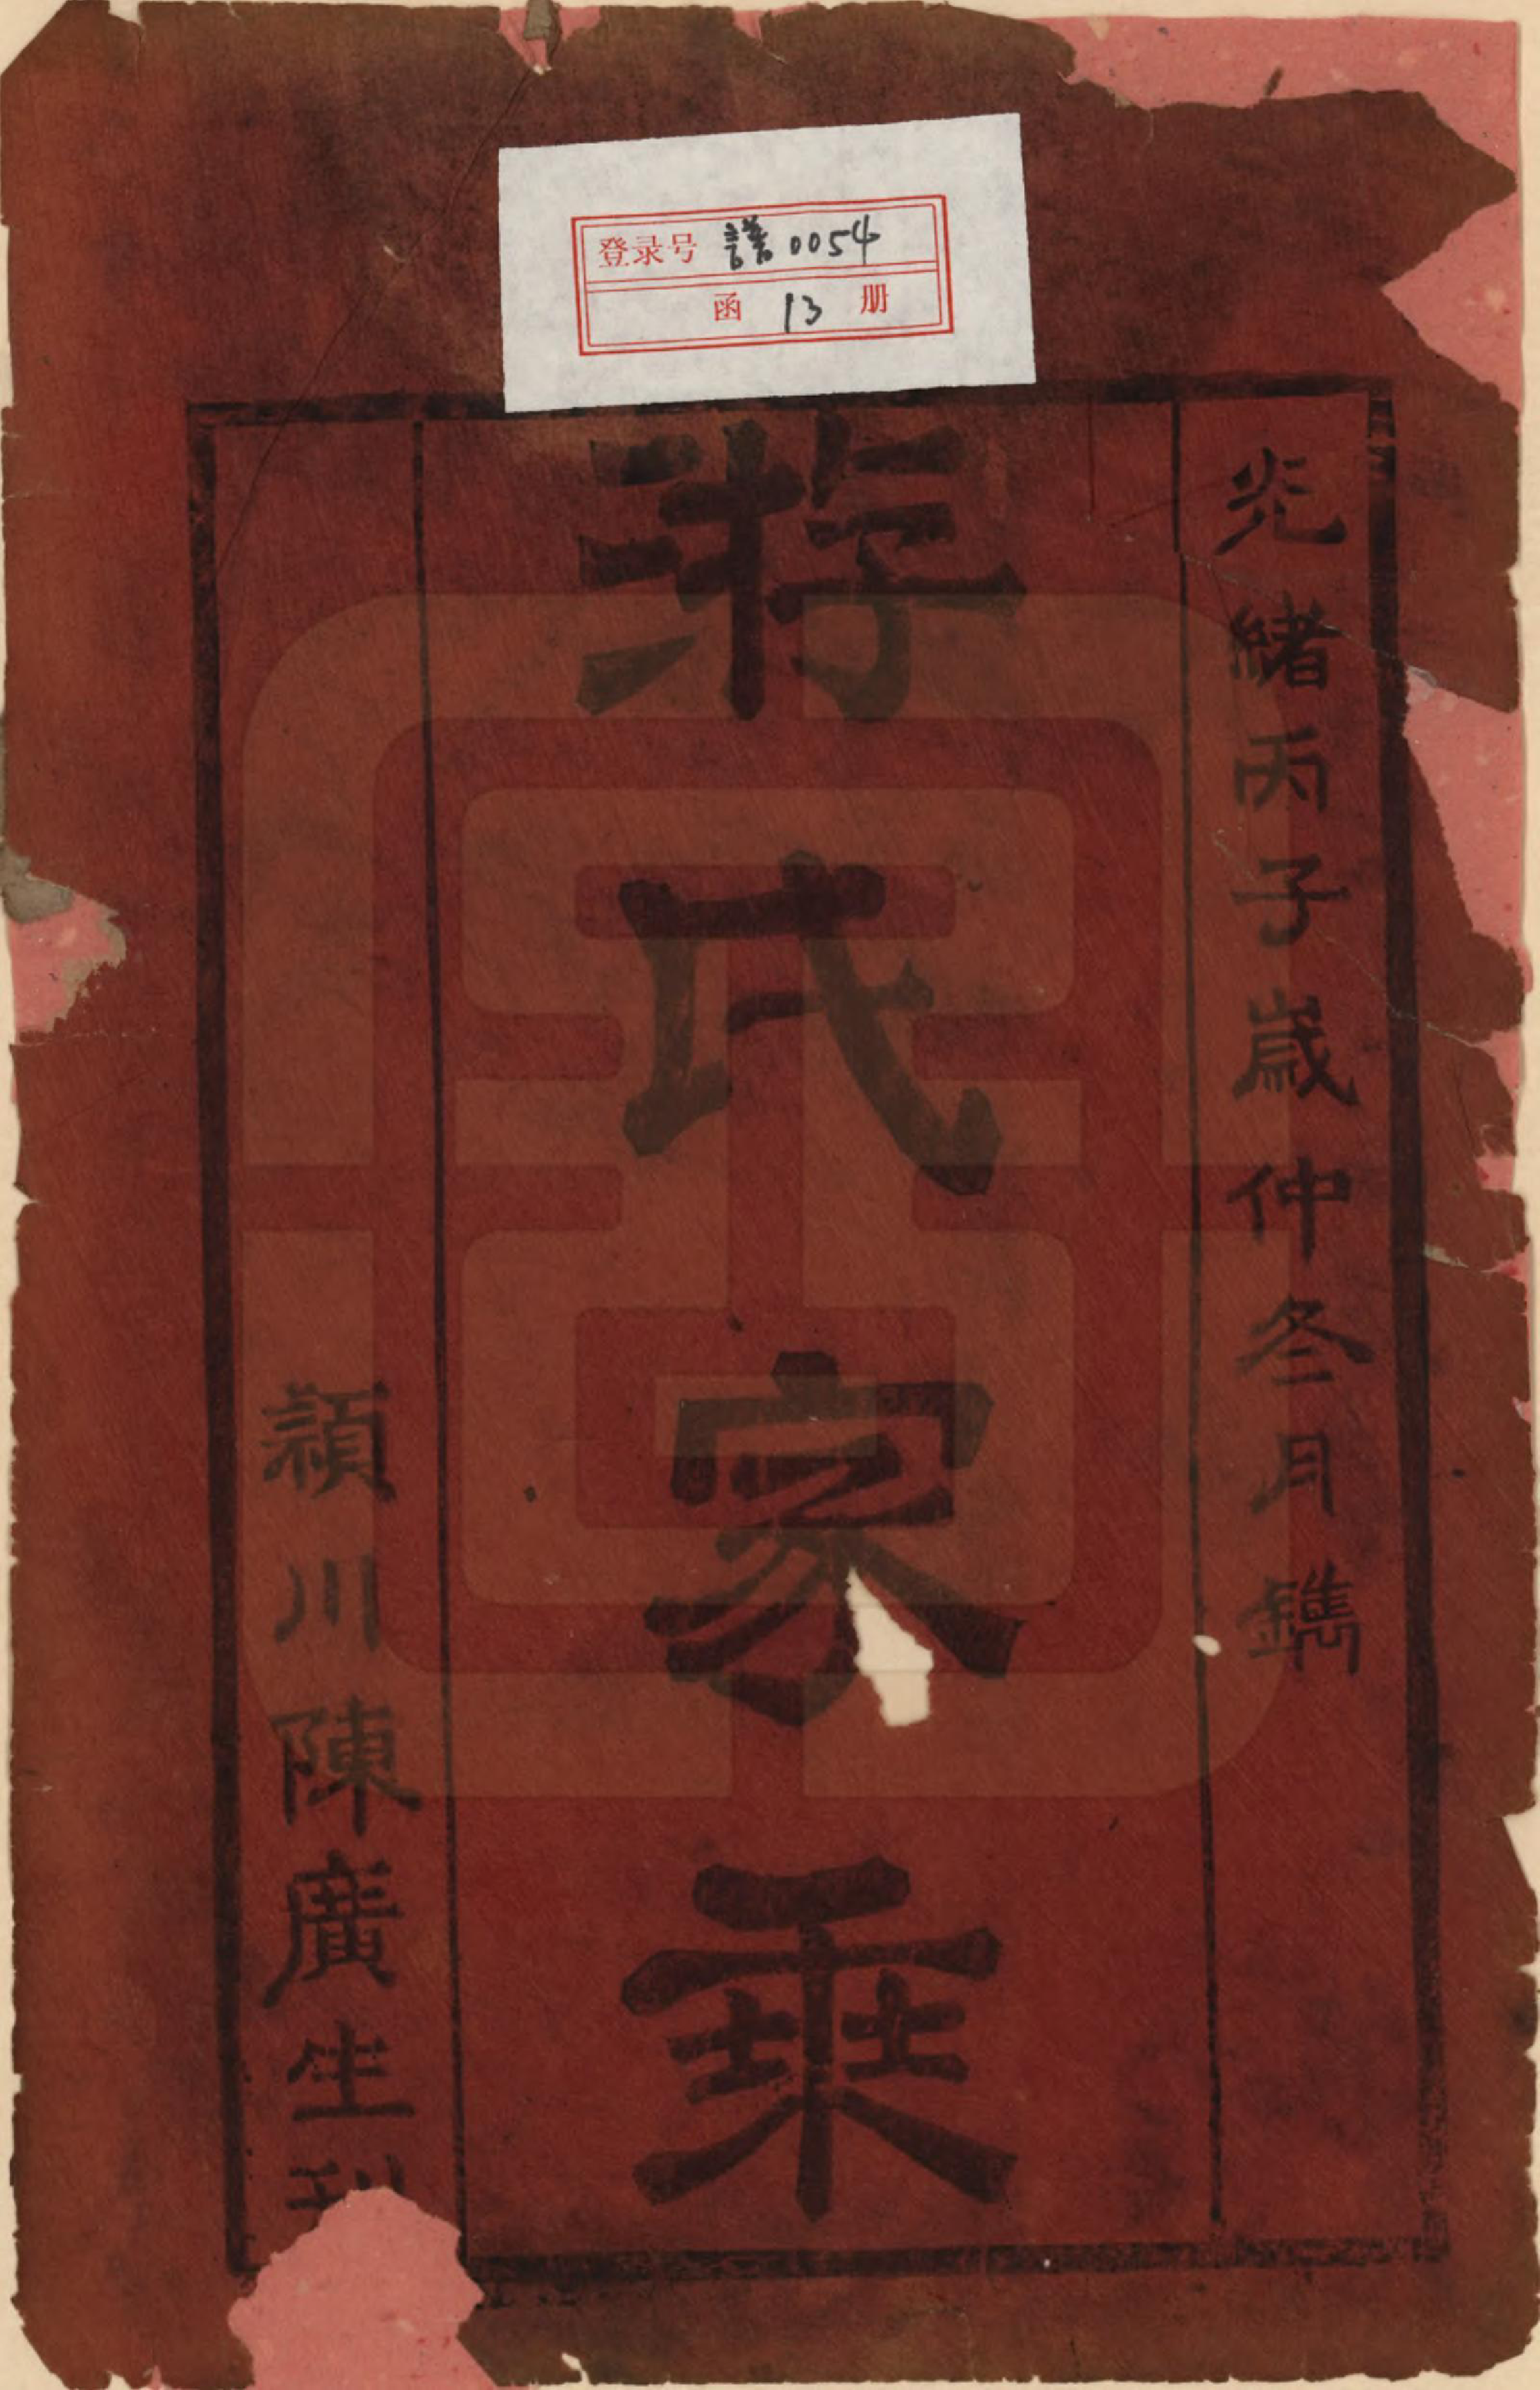 登录号 譜0054
函 13 册
光緒丙子歲仲冬月鐫
游氏家乘
潁川陳廣生